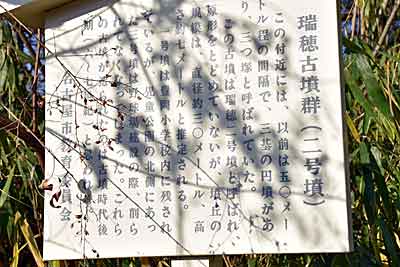 瑞穂古墳群(二号墳)
この付近には、以前は五〇メー
トル程の間隔で、三基の円墳があ
り、三つ塚と呼ばれていた。
この古墳は瑞穂二号墳と呼ばれ、
原形をとどめていないが、墳丘の
規模は、直径約三〇メートル、高
さ約七メートルと推定される。
一号墳は豊岡小学校内に残され
ているが、児童公園の北側にあっ
た三号墳は野球場建設の際、削ら
れてなくなってしまった。これら
の古墳が
は古墳時代後
期
と思われ
名古屋市教育委員会